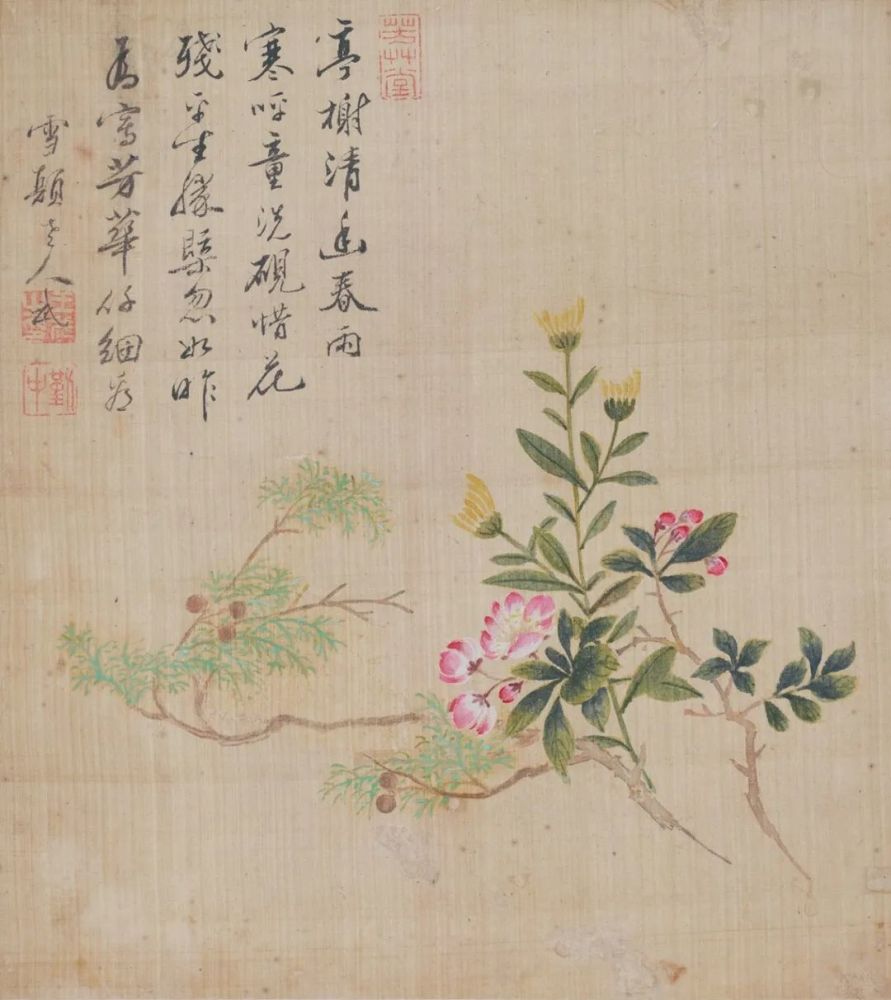 亭榭清幽春雨
寒呼童洗硯惜花
殘平生勝槩忽如昨
為寫芳華仔細看
雪顛老人